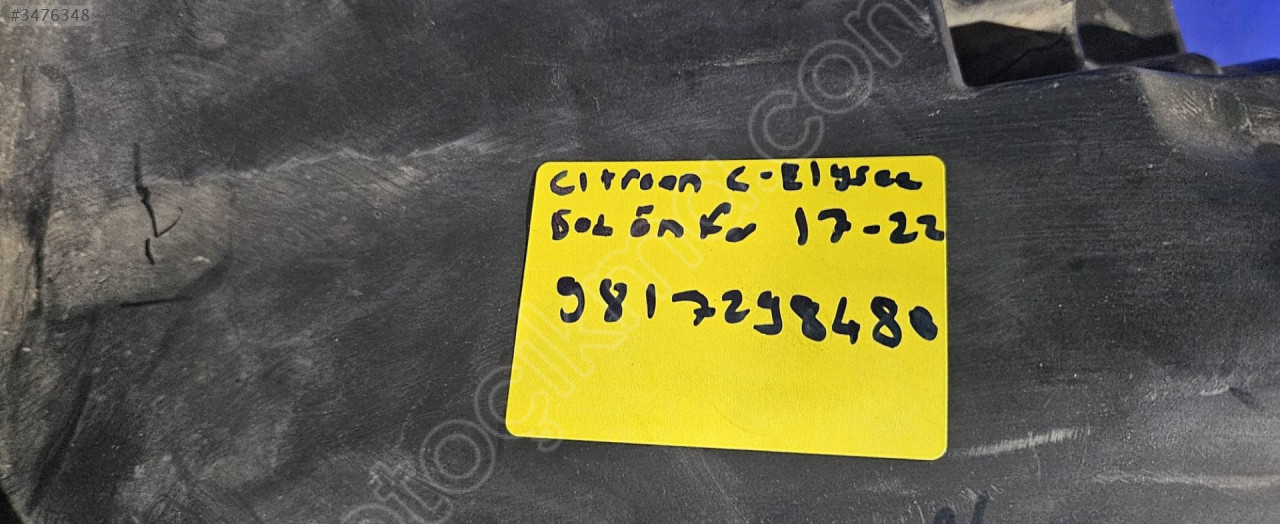 #3476348
Citroen C-Elysee
Sol ön Far 17-22
9817298480
otocikma.com